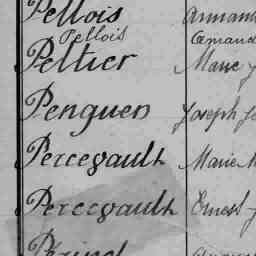 Pellois Armand
Pellois Amand
Peltier Marie
Penguen Joseph
Percegault Marie M
Percegault Ernest